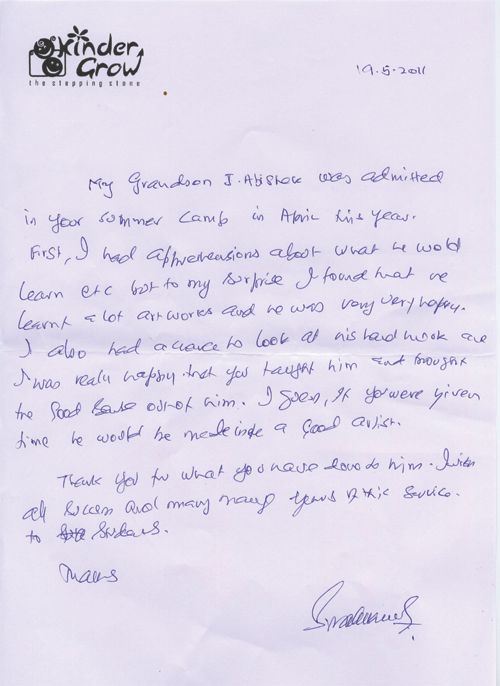 kinder
Grow
the stepping stone
19.5.2011
My Grandson J. Abishek was admitted
in your summer camp in April this year.
First, I had apprehensions about what he would
learn etc but to my surprise I found that he
learnt a lot art works and he was very very happy.
I also had a chance to look at his hand work and
I was really happy that you taught him and brought
the good out of him. I guess, if you were given
time he would be made a good artist.
Thank you for what you have done to him. I wish
all success and many many years of this service.
to students.
Thanks